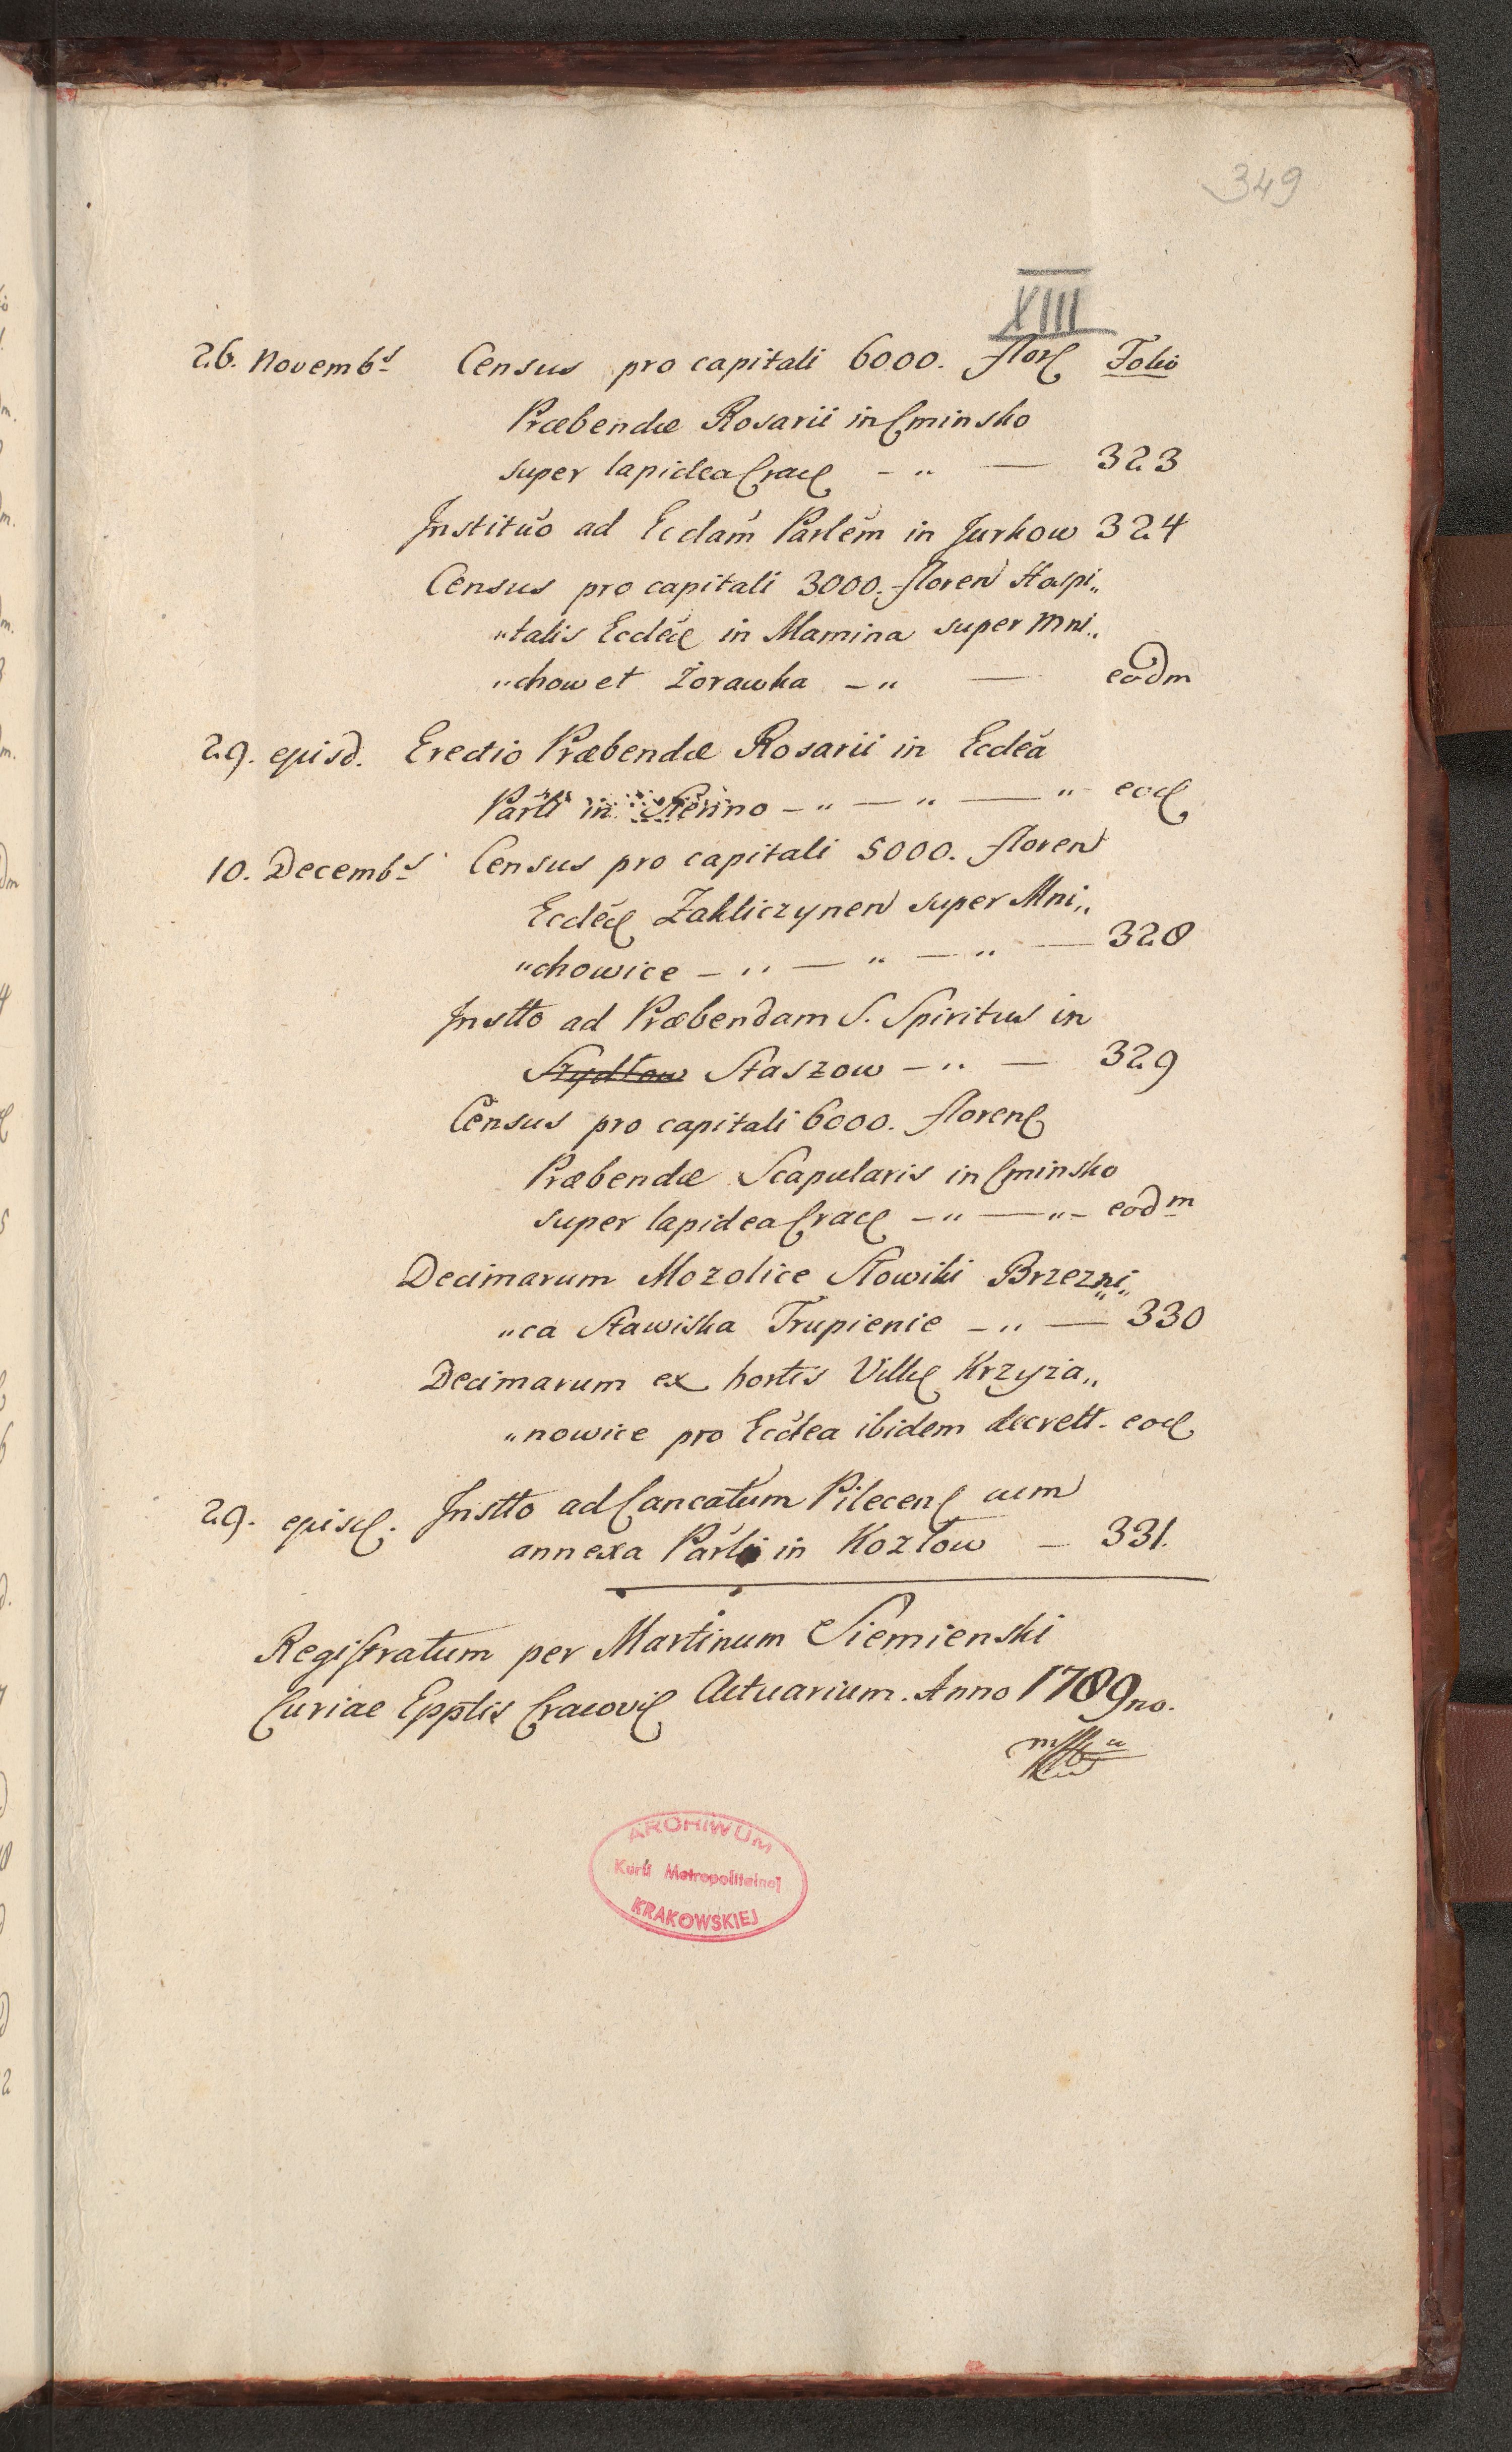 349
XIII
26. Novembs Census pro capitali 6000. flor Folio
Præbendæ Rosarii in Cminsko
super lapidea Crac - „ — 323
Institũo ad Ecclam Parlem in Jurkow 324
Census pro capitali 3000. floren Hospi„
„talis Eccleæ in Mamina super Mni„
„chow et Zorawka - „ — eodm
29. episd. Erectio Præbendæ Rosarii in Ecclea
Parli in Sienno - „ — „ — „ eod
10. Decembs Census pro capitali 5000. floren
Eccleæ Zakliczynen super Mni„
„chowice - „ — „ — „ — 328
Instto ad Præbendam S. Spiritus in
Szydłow Staszow - „ — 329
Census pro capitali 6000. floren
Præbendæ Scapularis in Cminsko
super lapidea Crac - „ — „ - eodm
Decimarum Mozolice Słowiki Brzezni„
„ca Stawiska Trupienie - „ — 330
Decimarum ex hortis Villæ Krzyża„
„nowice pro Ecclea ibidem decrett. eod
29. episd. Instto ad Cancatum Pilecen cum
annexa Parli in Kozłow - 331.
Registratum per Martinum Siemienski
Curiae Epptis Cracovi Actuarium. Anno 1789no.
ARCHIWUM
Kurii Metropolitalnej
KRAKOWSKIEJ